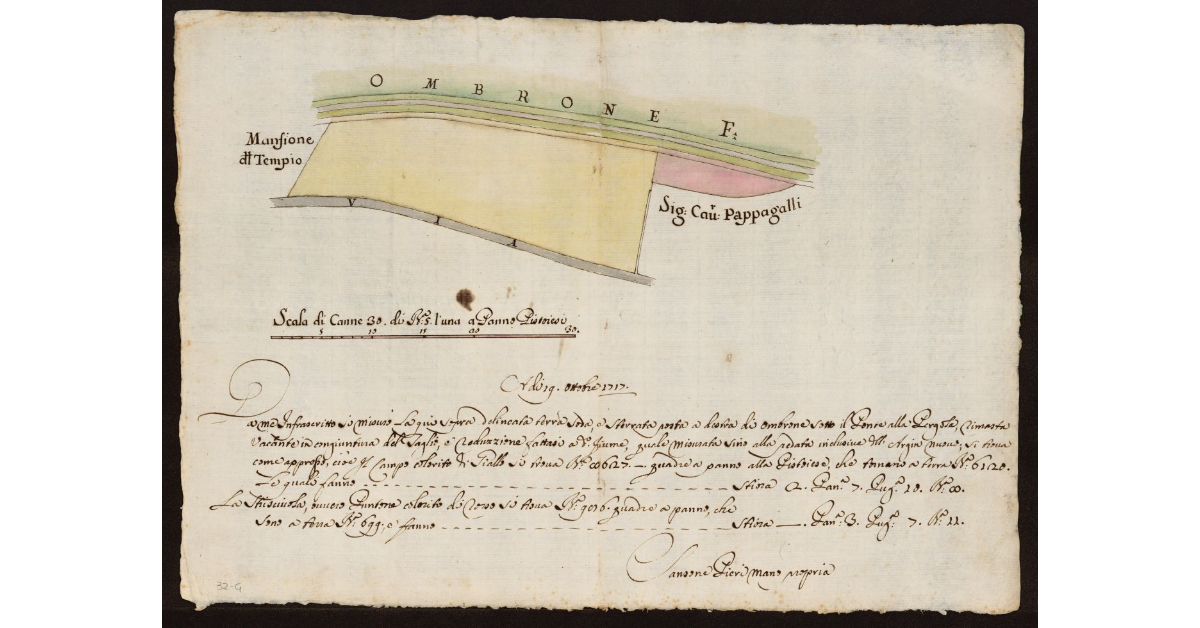 OMBRONE F:
Mansione
dll Tempio
Sig: Cau: Pappagalli
VIA
Scala di Canne 30. di Br. 5. l'una a Panno Pistoiesi
5 10 15 20 30.
Adi 19. Ottobre 1717.
Da me Infrascritto si misurò la qui sopra delineata terra soda, e sterrata posta a destra di Ombrone sotto il Ponte alla Pergola rimasta
vacante in congiuntura del Taglio, e Voltazione fattasi a d. fiume, quale misurata sino alla redata inclusive dll' Argin nuovo, si trova
come appresso, cioè Il Campo colorito di Giallo si trova Br. 8627. — quadre a panno alla Pistoiese, che tornano a terra Br. 6120.
Le quali fanno Stiora 2. Pan. 7. Pug. 10. Br. 8.
La Strisciuola, ovvero Puntone colorito di Rosso si trova Br. 9 quadre a panno, che
sono a terra Br. 699, e fanno Stiora —. Pan. 3. Pug. 7. Br. 11.
Sansone Pieri mano propria
32-G